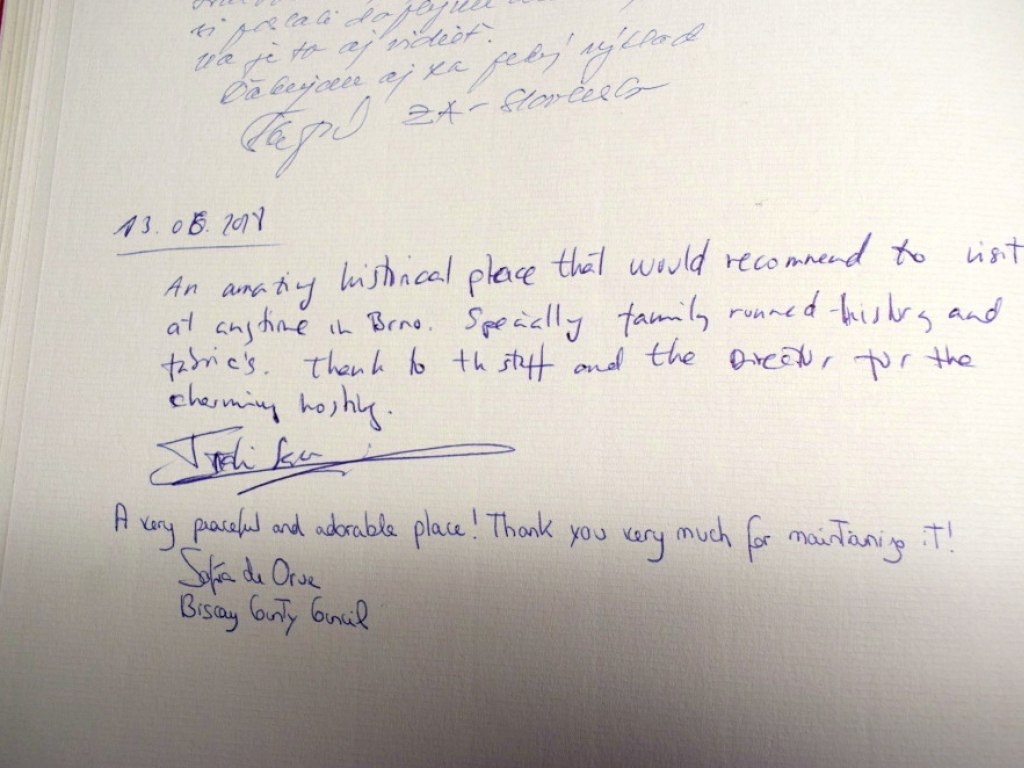 si
na je to aj vidieť.
Ďakujem aj za pekný výklad
ZA - Slovensko
13. 06. 2018
An amazing historical place that would recommend to visit
at anytime in Brno. Specially family runned history and
fabric's. Thank to th staff and the Director for the
charming hosting.
A very peaceful and adorable place! Thank you very much for maintaning it!
Sofia de Orue
Biscay County Council